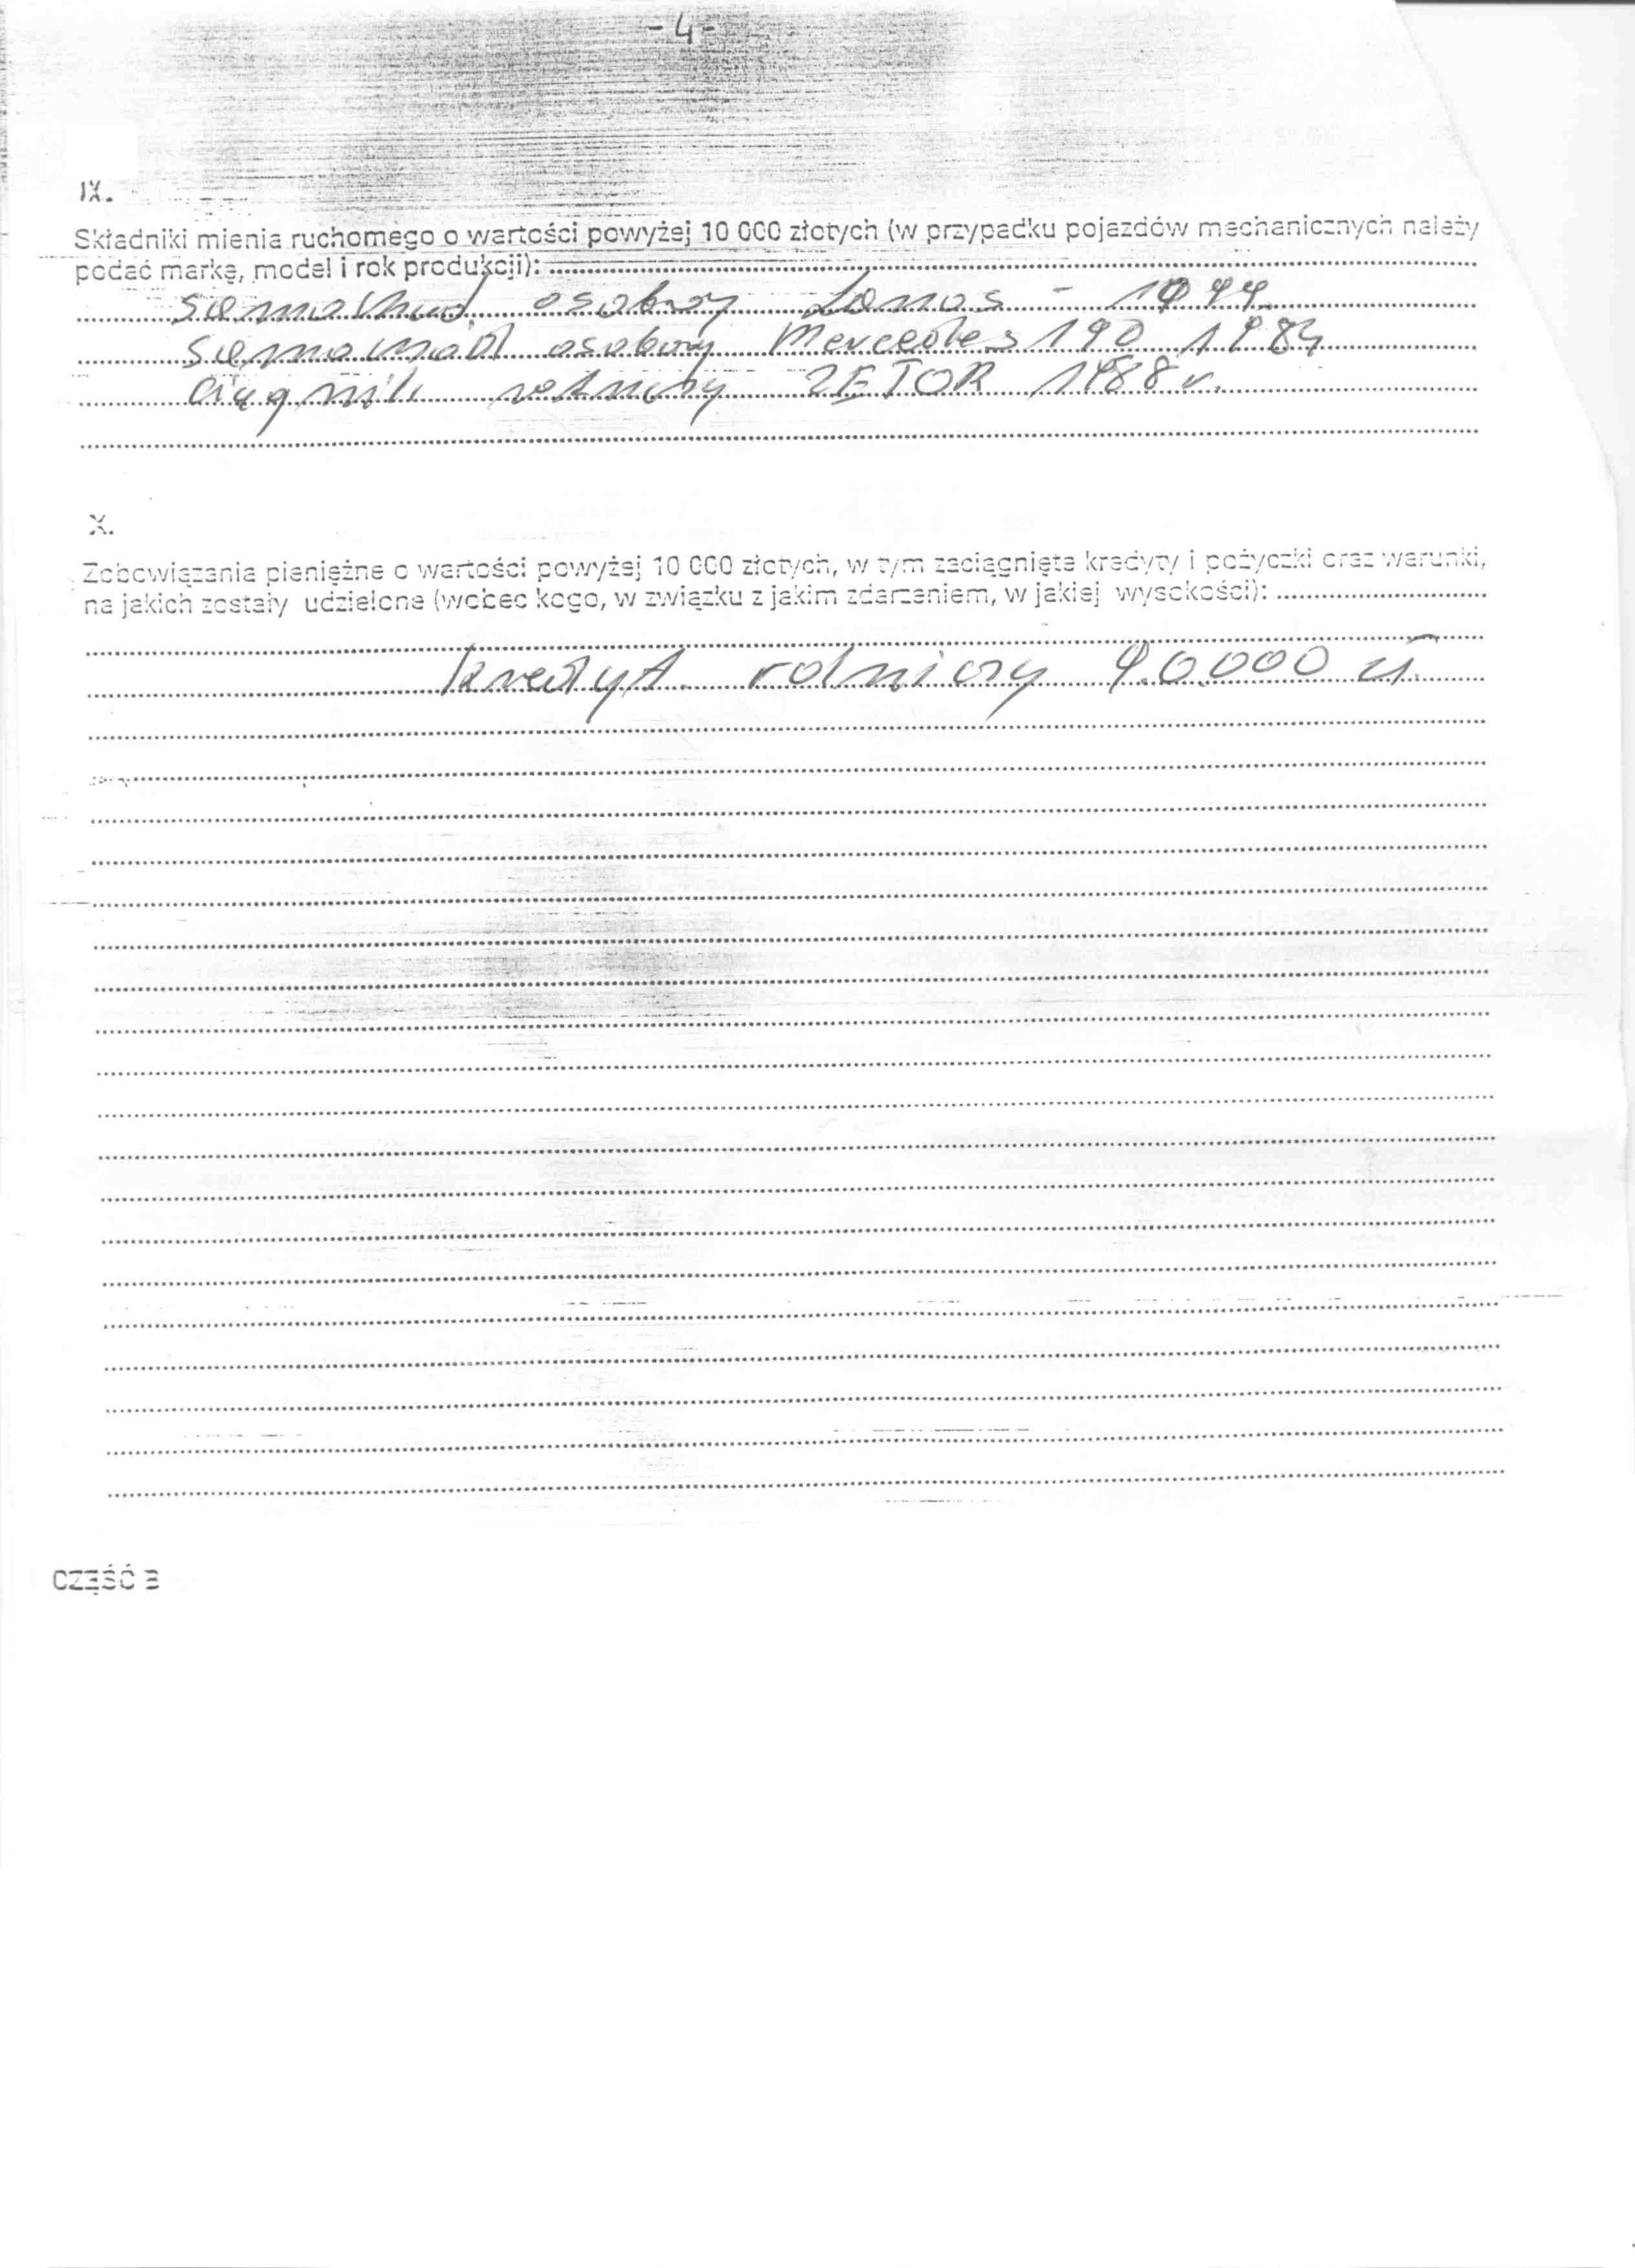 - 4 -
IX.
Składniki mienia ruchomego o wartości powyżej 10 000 złotych (w przypadku pojazdów mechanicznych należy
podać markę, model i rok produkcji):
samochód osobowy Lanos - 1999
samochód osobowy Mercedes 190 1984
ciągnik rolniczy ZETOR 1988 r.
X.
Zobowiązania pieniężne o wartości powyżej 10 000 złotych, w tym zaciągnięte kredyty i pożyczki oraz warunki,
na jakich zostały udzielone (wobec kogo, w związku z jakim zdarzeniem, w jakiej wysokości):
kredyt rolniczy 90.000 zł.
CZĘŚĆ B